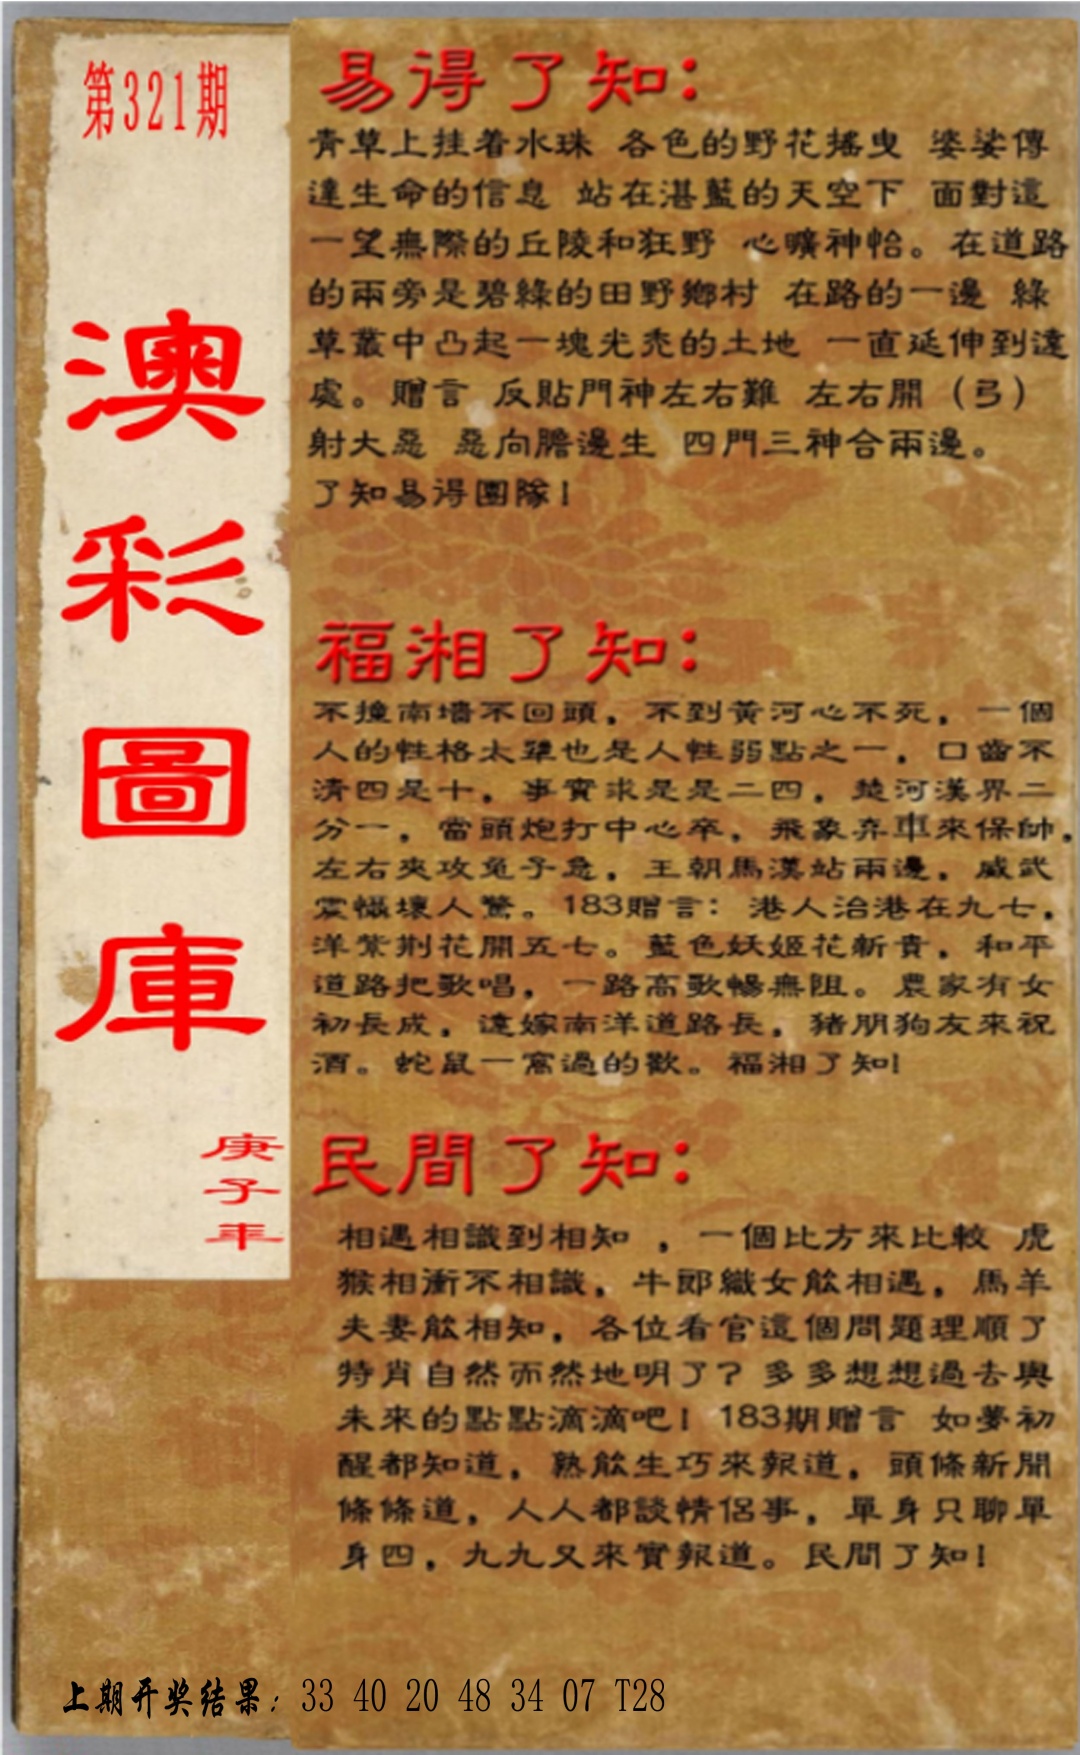 第321期
澳彩圖庫
庚子年
易得了知：
青草上挂着水珠 各色的野花摇曳 婆娑傳
達生命的信息 站在湛藍的天空下 面對這
一望無際的丘陵和狂野 心曠神怡。在道路
的兩旁是碧綠的田野鄉村 在路的一邊 綠
草叢中凸起一塊光禿的土地 一直延伸到遠
處。贈言 反貼門神左右難 左右開（弓）
射大惡 惡向膽邊生 四門三神合兩邊。
了知易得團隊！
福湘了知：
不撞南墻不回頭，不到黃河心不死，一個
人的性格太犟也是人性弱點之一，口齒不
清四是十，事實求是是二四，楚河漢界二
分一，當頭炮打中心卒，飛象弃車來保帥，
左右夾攻兔子急，王朝馬漢站兩邊，威武
震懾壞人驚。183贈言：港人治港在九七，
洋紫荆花開五七。藍色妖姬花新貴，和平
道路把歌唱，一路高歌暢無阻。農家有女
初長成，遠嫁南洋道路長，猪朋狗友來祝
酒。蛇鼠一窩過的歡。福湘了知！
民間了知：
相遇相識到相知，一個比方來比較 虎
猴相衝不相識，牛郎織女欲相遇，馬羊
夫妻欲相知，各位看官這個問題理順了
特肖自然而然地明了？多多想想過去與
未來的點點滴滴吧！183期贈言 如夢初
醒都知道，熟欲生巧來報道，頭條新聞
條條道，人人都談情侶事，單身只聊單
身四，九九又來實報道。民間了知！
上期开奖结果：33 40 20 48 34 07 T28